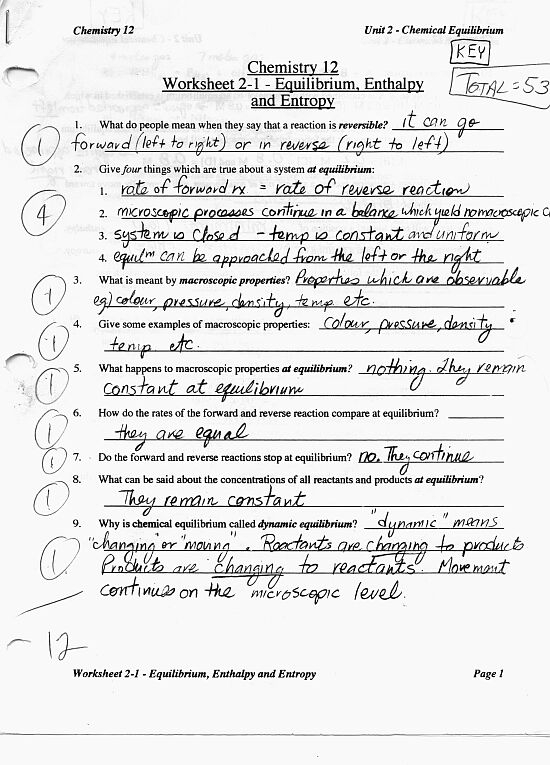 Chemistry 12 Unit 2 - Chemical Equilibrium
KEY
Chemistry 12
TOTAL = 53
Worksheet 2-1 - Equilibrium, Enthalpy
and Entropy
1. What do people mean when they say that a reaction is reversible? it can go
forward (left to right) or in reverse (right to left)
1
2. Give four things which are true about a system at equilibrium:
1. rate of forward rx = rate of reverse reaction
4
2. microscopic processes continue in a balance which yield no macroscopic C
3. system is closed - temp is constant and uniform
4. equilm can be approached from the left or the right
3. What is meant by macroscopic properties? Properties which are observable
1
eg) colour, pressure, density, temp etc.
4. Give some examples of macroscopic properties: colour, pressure, density
1
temp. etc.
5. What happens to macroscopic properties at equilibrium? nothing. They remain
1
constant at equilibrium
6. How do the rates of the forward and reverse reaction compare at equilibrium?
1
they are equal
7. Do the forward and reverse reactions stop at equilibrium? no. They continue
1
8. What can be said about the concentrations of all reactants and products at equilibrium?
1
They remain constant
9. Why is chemical equilibrium called dynamic equilibrium? "dynamic" means
"changing" or "moving". Reactants are changing to products
1
Products are changing to reactants. Movement
continues on the microscopic level.
12
Worksheet 2-1 - Equilibrium, Enthalpy and Entropy Page 1